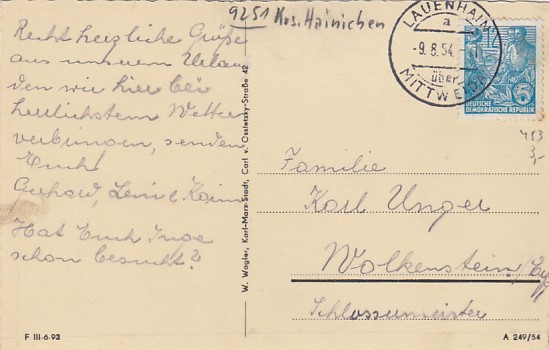 9251 Krs. Hainichen
LAUENHAIN
a
-9.8.54
über
MITTWEIDA
DEUTSCHE
DEMOKRATISCHE REPUBLIK
5
Recht herzliche Grüße
aus unserem Urlau
den wir hier bei
herrlichstem Wetter
verbringen, senden
Euch
Gerhard,
Hat Euch Inge
schon besucht?
W. Wagler, Karl-Marx-Stadt, Carl v. Ossietzky-Straße 42
453
3,-
Familie
Karl Unger
Wolkenstein,
Schlossermeister
F III-6-93
A 249/54